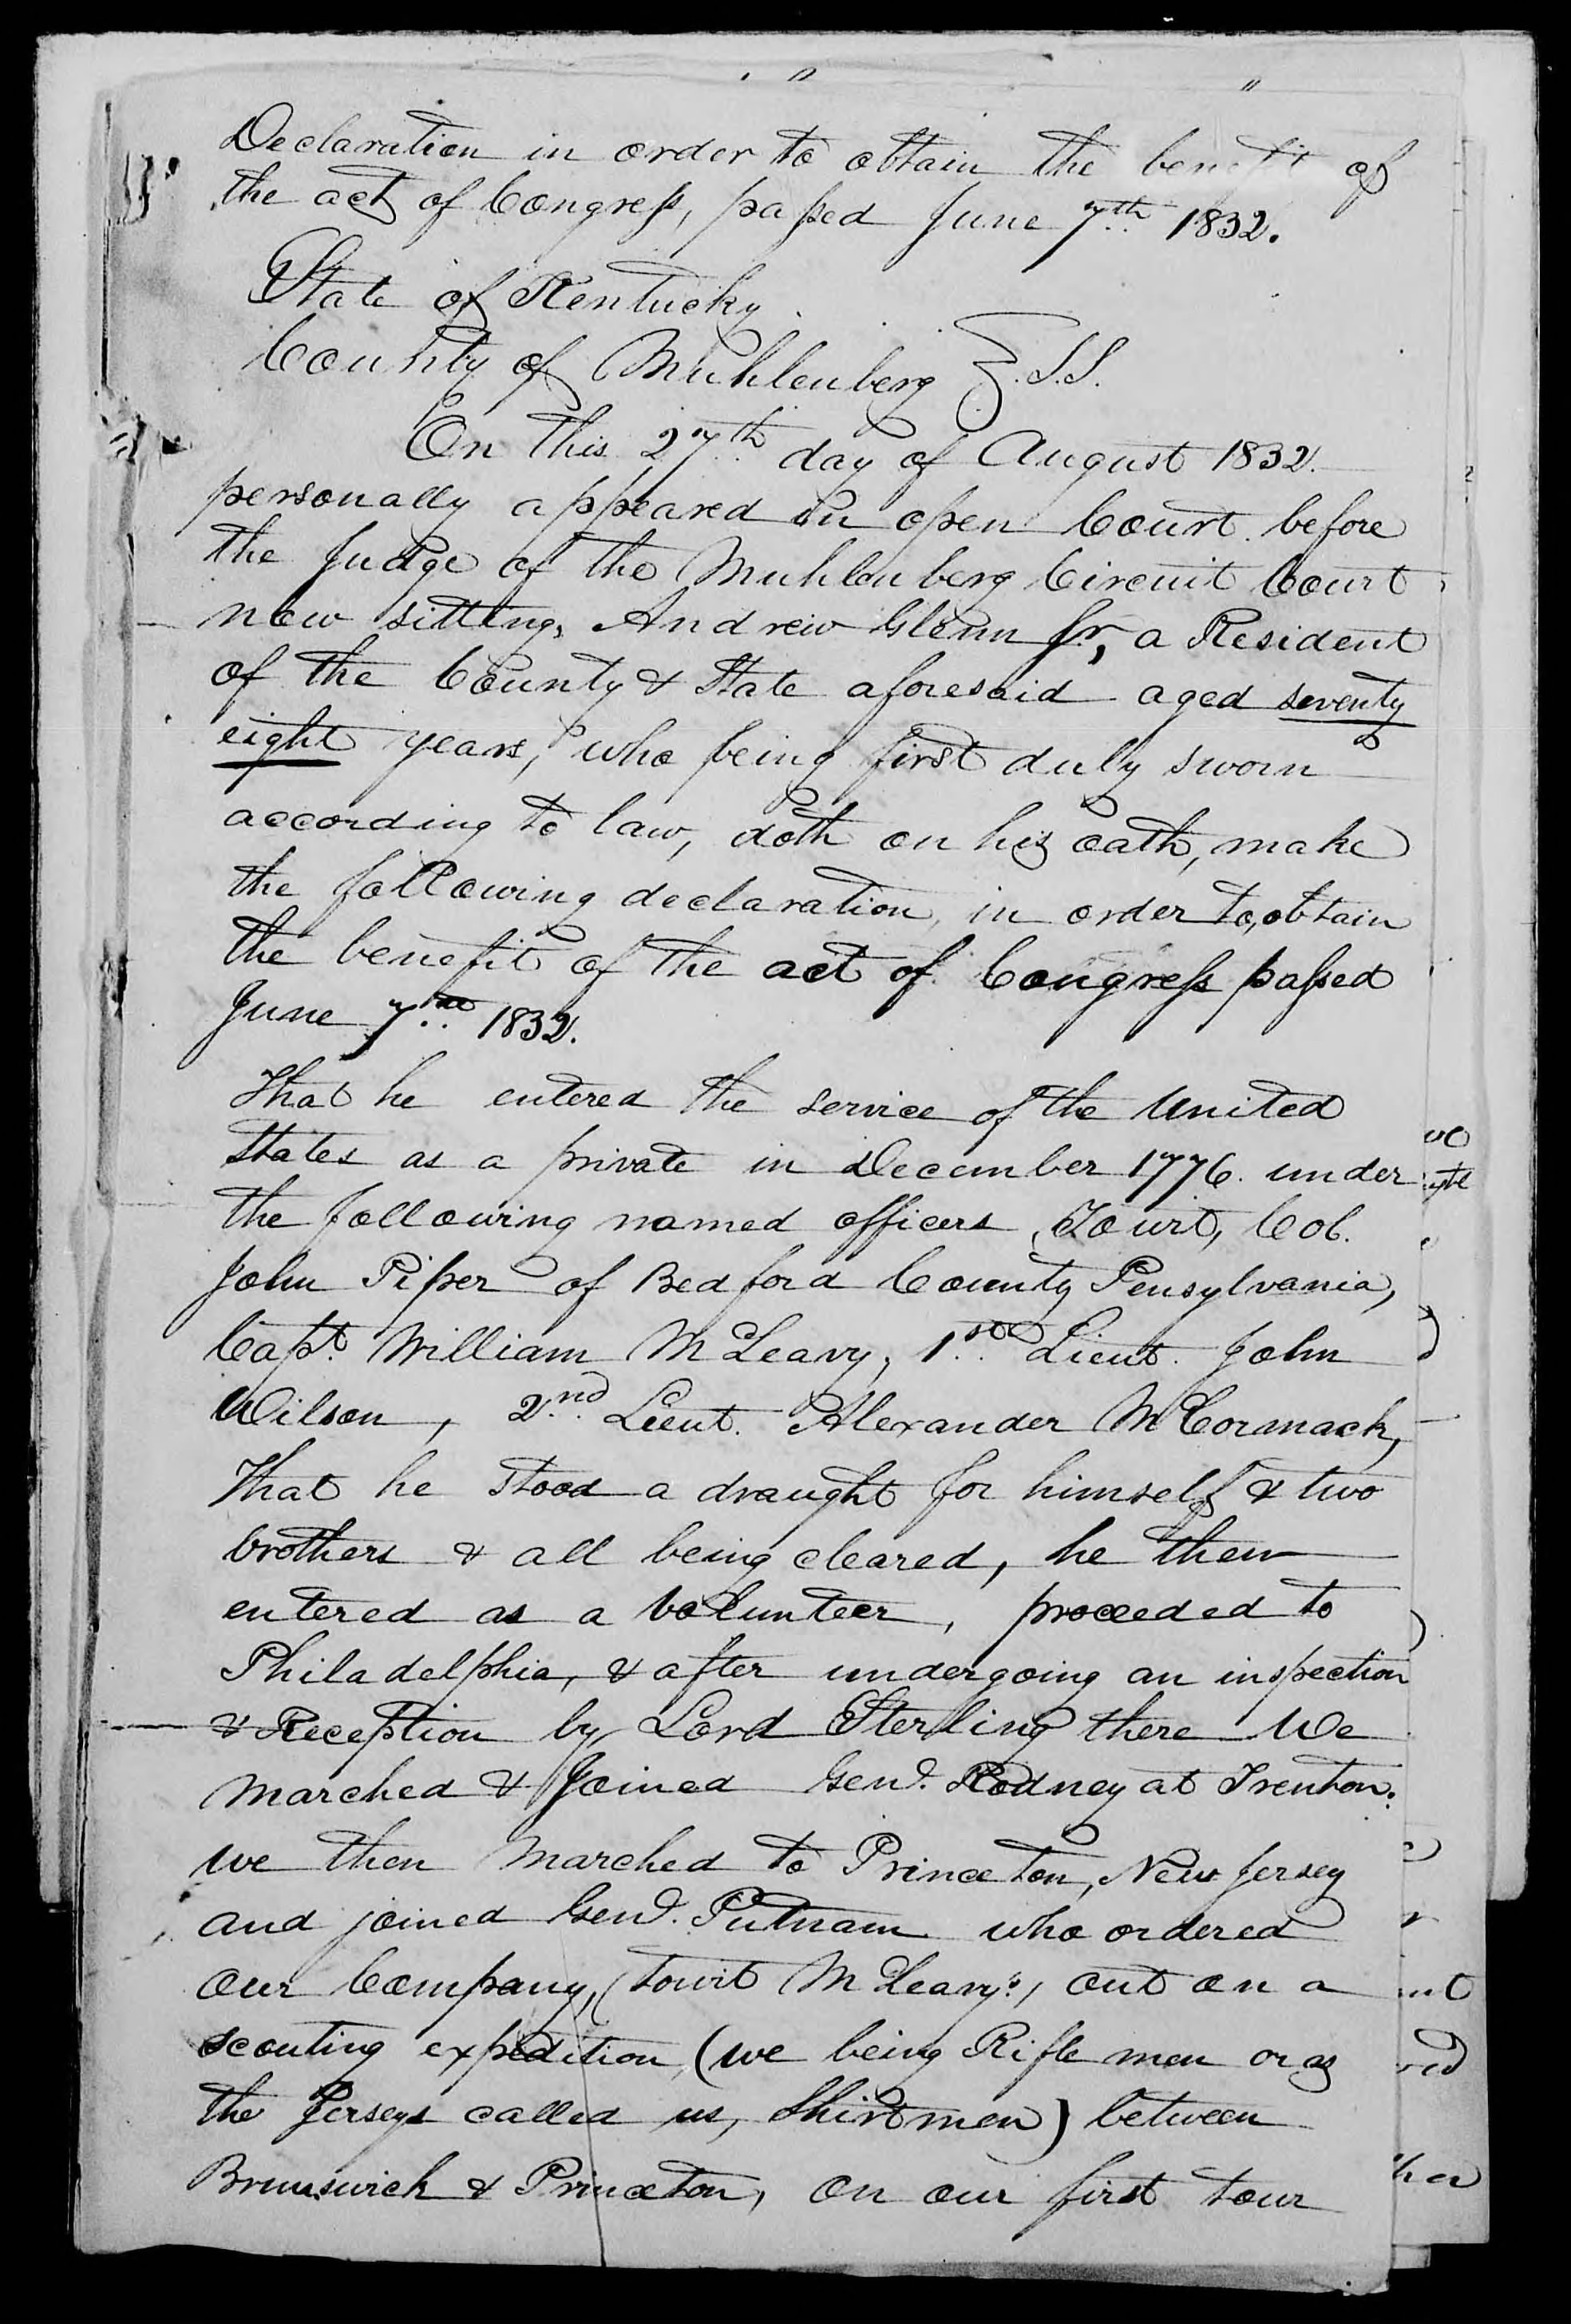 Declaration in order to obtain the benefit of
the act of Congress, passed June 7th 1832.
State of Kentucky
County of Muhlenberg S.S.
On this 27th day of August 1832.
personally appeared in open Court before
the Judge of the Muhlenberg Circuit Court
now sitting, Andrew Glenn Sr, a Resident
of the County & State aforesaid aged seventy
eight years, who being first duly sworn
according to law, doth on his oath, make
the following declaration, in order to, obtain
the benefit of the act of Congress passed
June 7th 1832.
That he entered the service of the United
States as a private in December 1776. under
the following named officers, Towit, Col.
John Piper of Bedford County Pensylvania,
Capt. William McLeavy, 1st Lieut. John
Wilson, 2nd Lieut. Alexander McCormack,
That he stood a draught for himself & two
brothers & all being cleared, he then
entered as a volunteer, proceeded to
Philadelphia, & after undergoing an inspection
& Reception by Lord Sterling there We
marched & Joined Genl. Rodney at Trenton.
we then marched to Princeton, New Jersey
and joined Genl. Putnam who ordered
our Company, (towit McLeavy's, out on a
scouting expedition, (we being Rifle men or as
the Jerseys called us, Shirtmen) between
Brunswick & Princeton, on our first tour